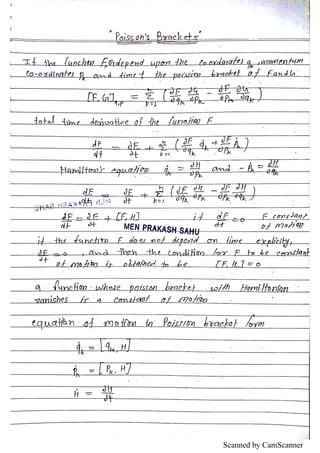 "Poisson's Brackets"
If the function F, G depend upon the Co-ordinates q, momentum
Co-ordinates Pk and time t the poission bracket of F and G
[F, G]q,p = Σ k=1 n ( ∂F/∂qk ∂G/∂pk - ∂F/∂pk ∂G/∂qk )
total time derivative of the function F
dF/dt = ∂F/∂t + Σ k=1 n ( ∂F/∂qk q̇k + ∂F/∂pk ṗk )
Hamilton's equation q̇k = ∂H/∂pk and - ṗk = ∂H/∂qk
dF/dt = ∂F/∂t + Σ k=1 n ( ∂F/∂qk ∂H/∂pk - ∂F/∂pk ∂H/∂qk )
dF/dt = ∂F/∂t + [F, H] if dF/dt = 0 F constant of motion
MEN PRAKASH SAHU
if the function F does not depend on time explicity,
∂F/∂t = 0, and then the condition for F to be constant
of motion is obtained to be [F, H] = 0
a function whose poission bracket with Hamiltonian
vanishes is a constant of motion
equation of motion in Poission bracket form
q̇k = [qk, H]
ṗk = [Pk, H]
Ḣ = ∂H/∂t
Scanned by CamScanner